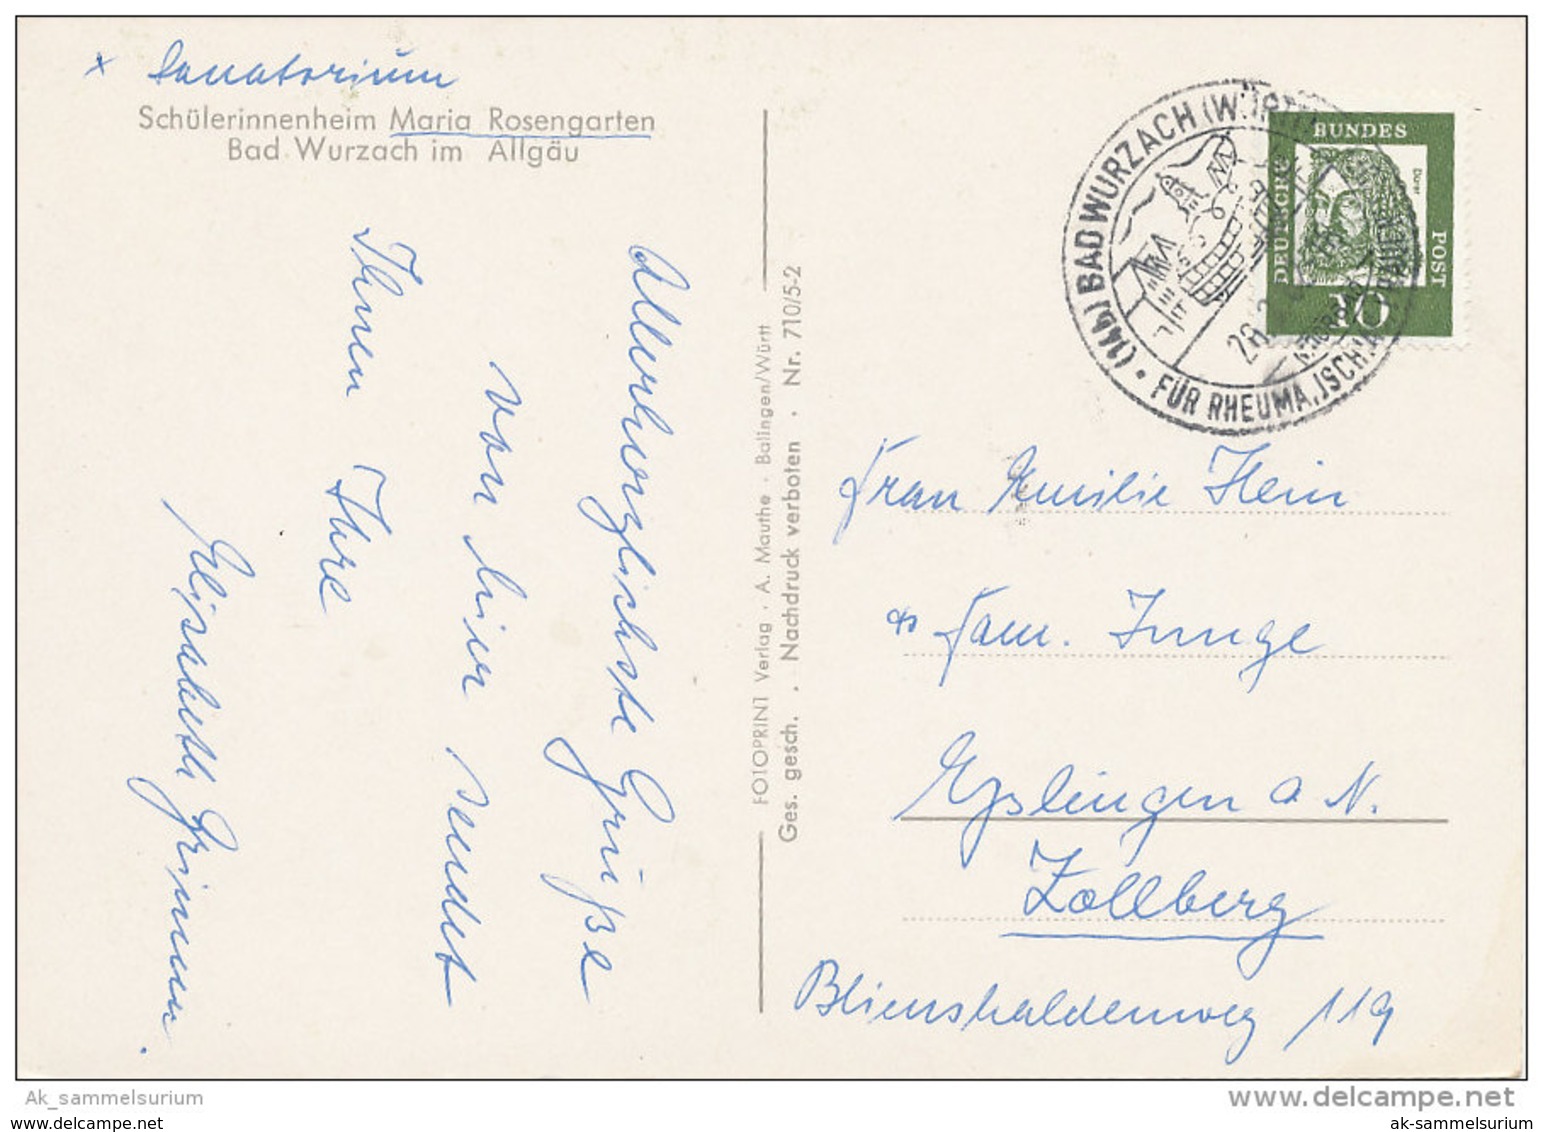 x Sanatorium
Schülerinnenheim Maria Rosengarten
Bad Wurzach im Allgäu
Allerherzlichste Grüße
von hier sendet
Ihnen Ihre
Elisabeth Grimm.
FOTOPRINT Verlag · A. Mauthe · Balingen/Württ
Ges. gesch. . Nachdruck verboten . Nr. 710/5-2
(14b) BAD WURZACH (WÜRTT
FÜR RHEUMA, ISCHIAS
DEUTSCHE
BUNDES
POST
Dürer
10
Frau Emilie Hein
Fam. Junge
Esslingen a. N.
Zollberg
Blienshaldenweg 119
Ak_sammelsurium
www.delcampe.net
ak-sammelsurium